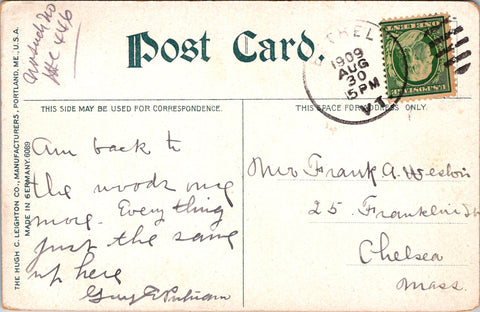 Post Card.
THIS SIDE MAY BE USED FOR CORRESPONDENCE.
THIS SPACE FOR ADDRESS ONLY.
THE HUGH C. LEIGHTON CO., MANUFACTURERS, PORTLAND, ME., U.S.A.
MADE IN GERMANY. 6089
1909
AUG
30
5 PM
VT.
Am back to
the woods once
more. Everything
just the same
up here
Guy E Putnam
Mr Frank A.
25 Franklin St
Chelsea
Mass.
446